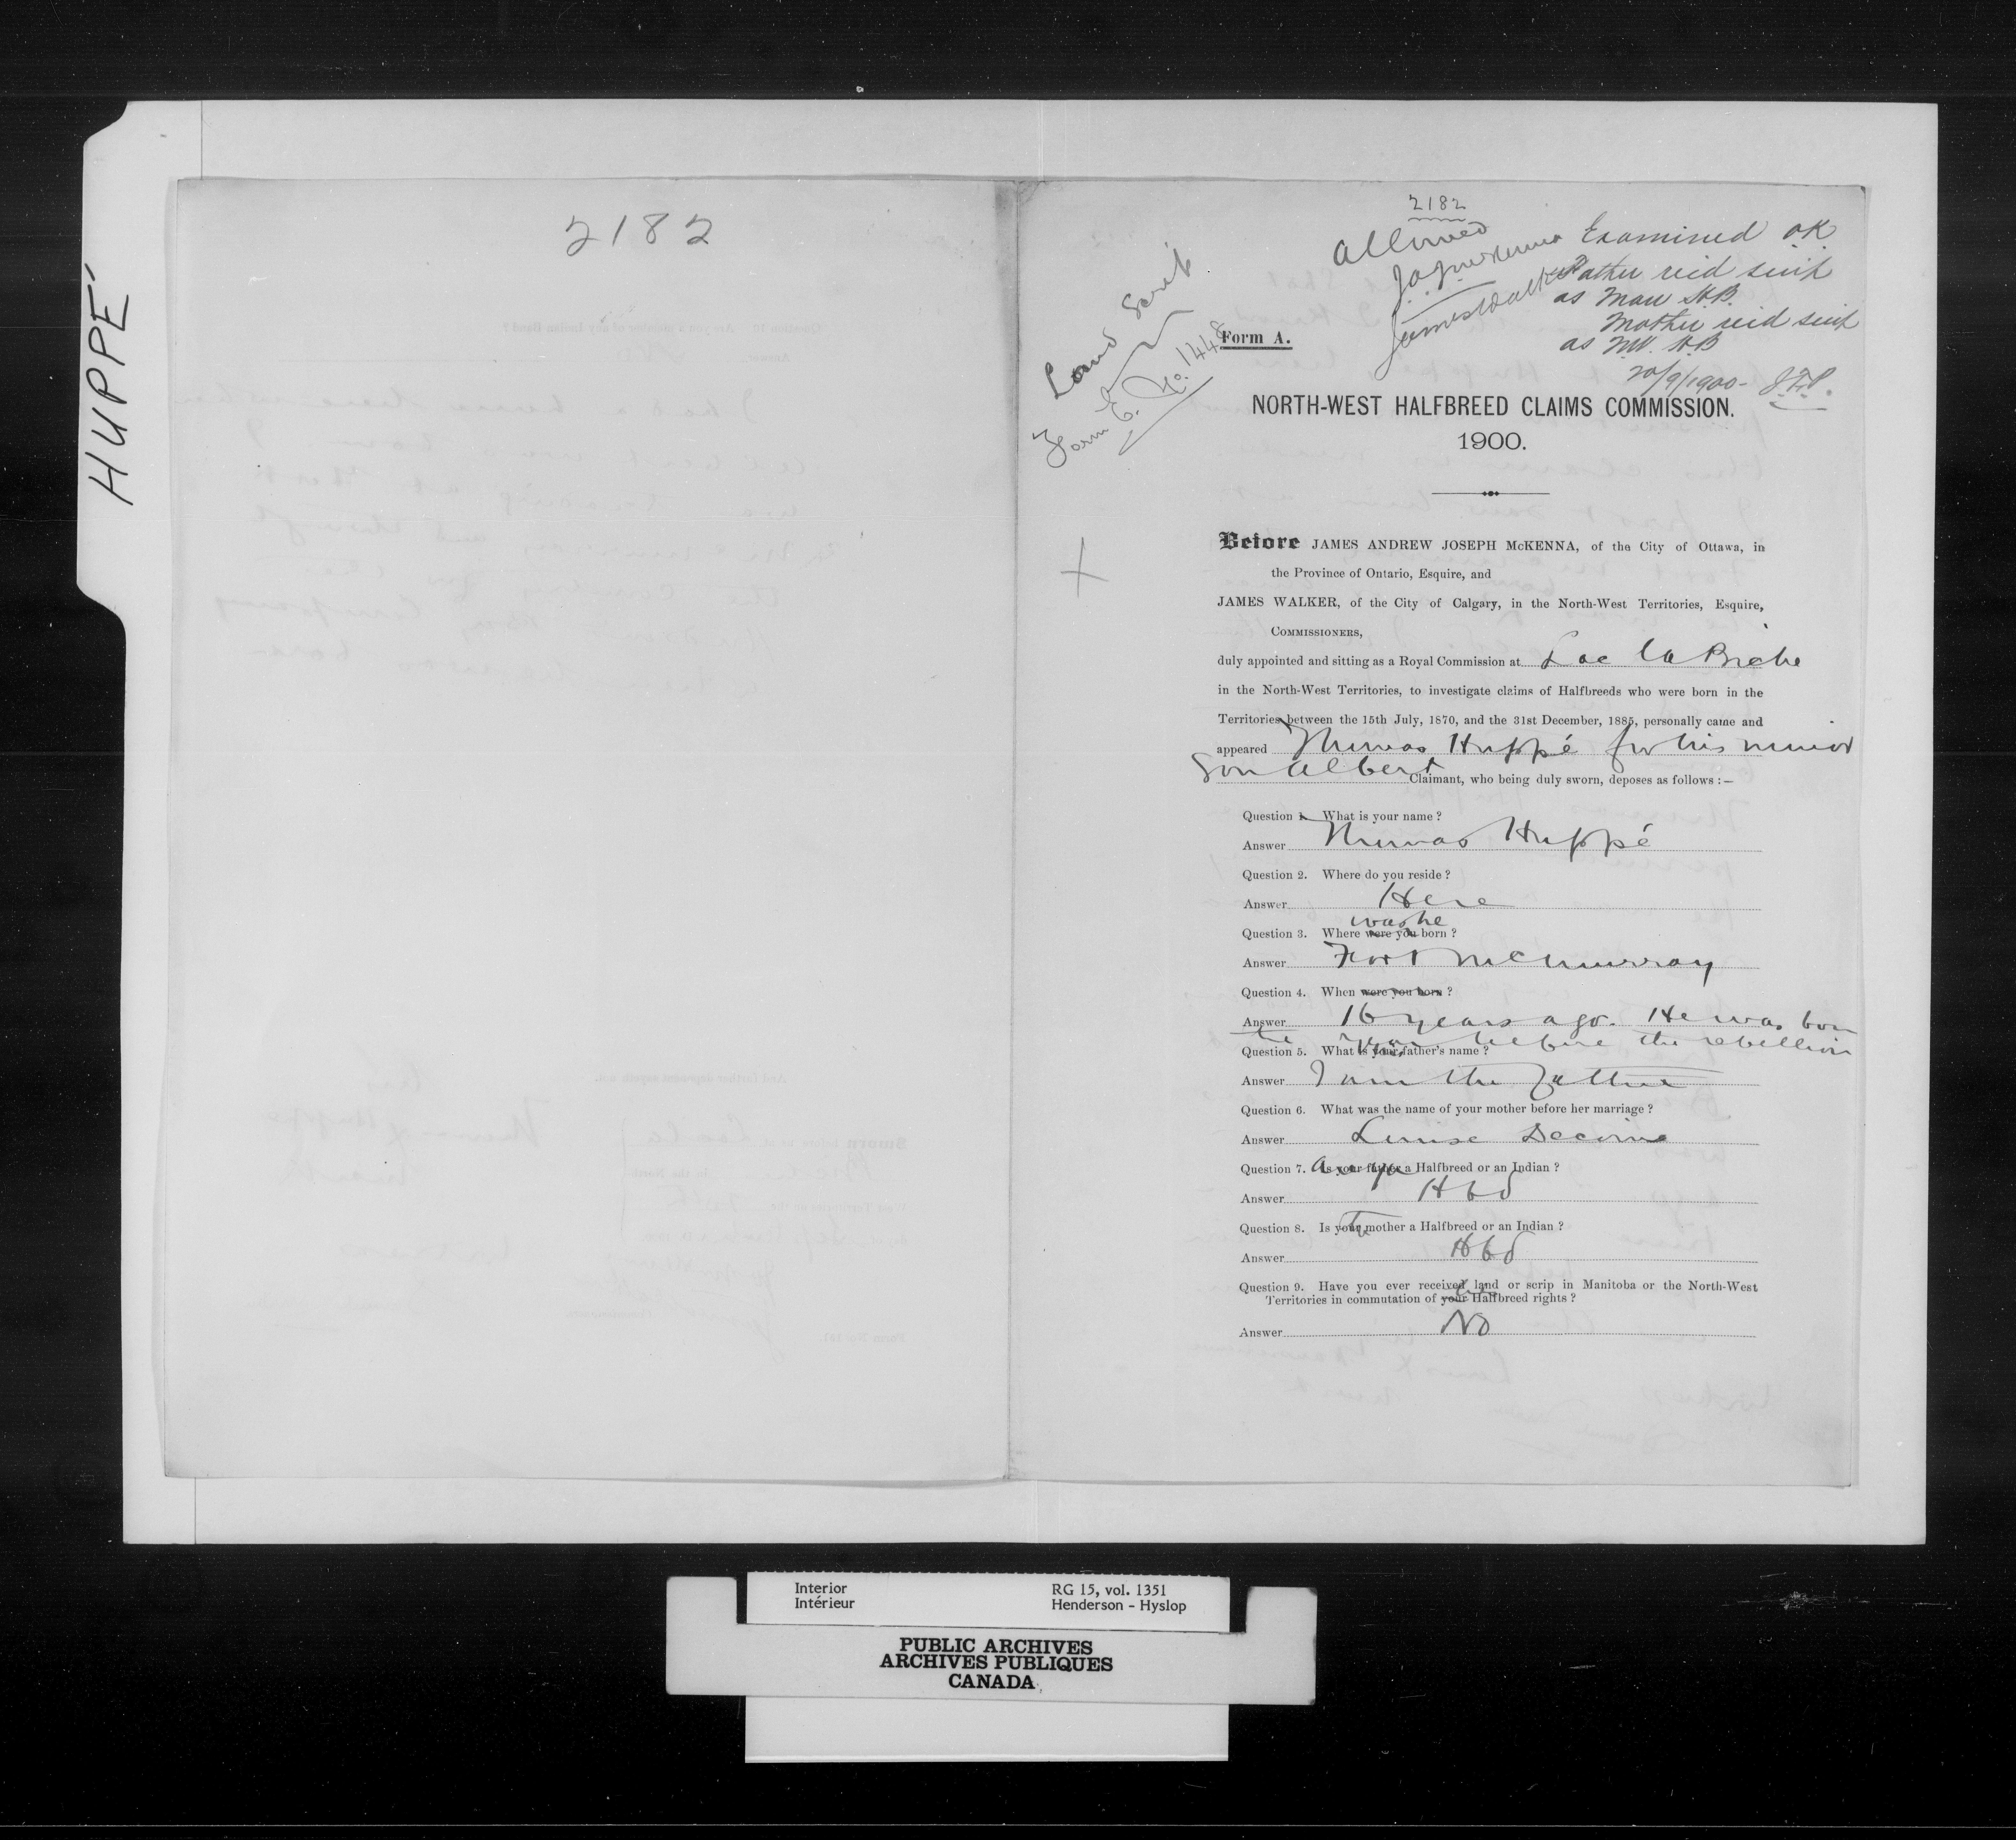 HUPPÉ
2182
2182
allowed
J.A.J. McKenna
James Walker
Examined OK
Father recd scrip
as Man H.B.
Mother recd scrip
as NW. H.B
20/9/1900 - J.F.P.
Land Scrip
Form E. No. 1448
Form A.
NORTH-WEST HALFBREED CLAIMS COMMISSION.
1900.
Before JAMES ANDREW JOSEPH McKENNA, of the City of Ottawa, in
the Province of Ontario, Esquire, and
JAMES WALKER, of the City of Calgary, in the North-West Territories, Esquire,
COMMISSIONERS,
duly appointed and sitting as a Royal Commission at Lac la Biche
in the North-West Territories, to investigate claims of Halfbreeds who were born in the
Territories between the 15th July, 1870, and the 31st December, 1885, personally came and
appeared Thomas Huppé for his minor
son Albert Claimant, who being duly sworn, deposes as follows :—
Question 1. What is your name ?
Answer Thomas Huppé
Question 2. Where do you reside ?
Answer Here
was he
Question 3. Where were you born ?
Answer Fort McMurray
Question 4. When were you born ?
Answer 16 years ago. He was born
the year before the rebellion
Question 5. What is your father's name ?
Answer I am the father
Question 6. What was the name of your mother before her marriage ?
Answer Louise Decoine
Question 7. Are you Is your father a Halfbreed or an Indian ?
Answer Hbd
Question 8. Is your the mother a Halfbreed or an Indian ?
Answer Hbd
Question 9. Have you ever received land or scrip in Manitoba or the North-West
Territories in commutation of your his Halfbreed rights ?
Answer No
Interior
Intérieur
RG 15, vol. 1351
Henderson - Hyslop
PUBLIC ARCHIVES
ARCHIVES PUBLIQUES
CANADA